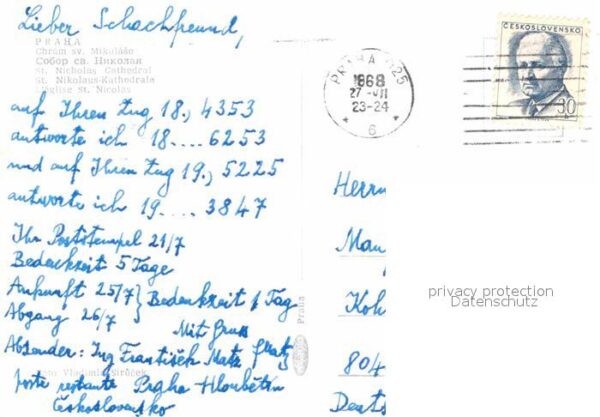 Lieber Schachfreund,
PRAHA
Chrám sv. Mikuláše
Собор св. Николая
St. Nicholas Cathedral
St. Nikolaus-Kathedrale
L'église St. Nicolas
auf Ihren Zug 18., 4353
antworte ich 18.... 6253
und auf Ihren Zug 19., 5225
antworte ich 19.... 3847
Ihr Poststempel 21/7
Bedenkzeit 5 Tage
Ankunft 25/7 } Bedenkzeit 1 Tag
Abgang 26/7
Mit Gruss
Absender: Ing František Matz
poste restante Praha Hloubětín
Československo
Praha
PRAHA 025
1968
27.-VII
23-24
6
ČESKOSLOVENSKO
30
Herrn
Mau
Koh
804
Deuts
privacy protection
Datenschutz